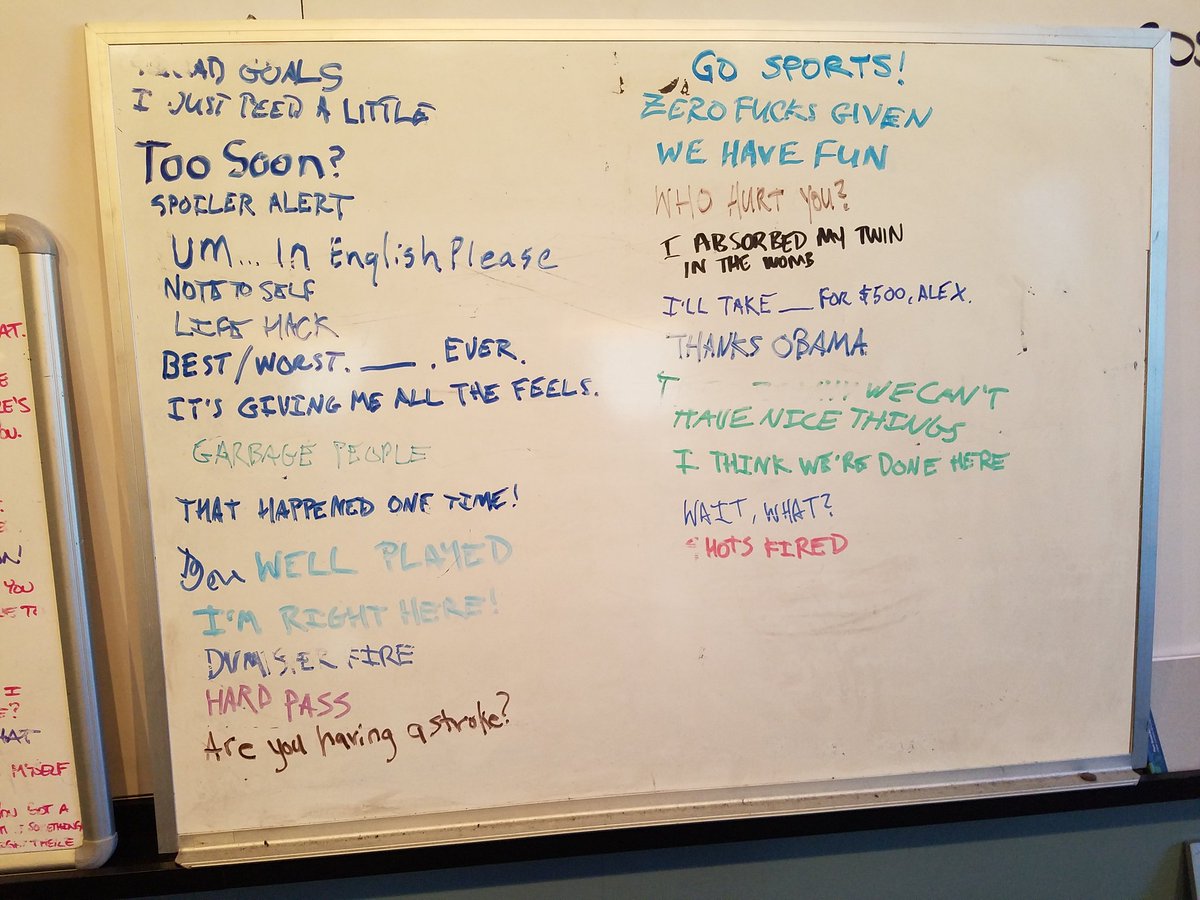 GOALS
I JUST PEED A LITTLE
Too Soon?
SPOILER ALERT
UM... In English Please
NOTE TO SELF
LIFE HACK
BEST/WORST. __ . EVER.
IT'S GIVING ME ALL THE FEELS.
GARBAGE PEOPLE
THAT HAPPENED ONE TIME!
WELL PLAYED
I'M RIGHT HERE!
FIRE
HARD PASS
Are you having a stroke?
GO SPORTS!
ZERO FUCKS GIVEN
WE HAVE FUN
WHO HURT YOU?
I ABSORBED MY TWIN
IN THE WOMB
I'LL TAKE __ FOR $500, ALEX.
THANKS OBAMA
WE CAN'T
HAVE NICE THINGS
I THINK WE'RE DONE HERE
WAIT, WHAT?
SHOTS FIRED
YOU
I
MYSELF